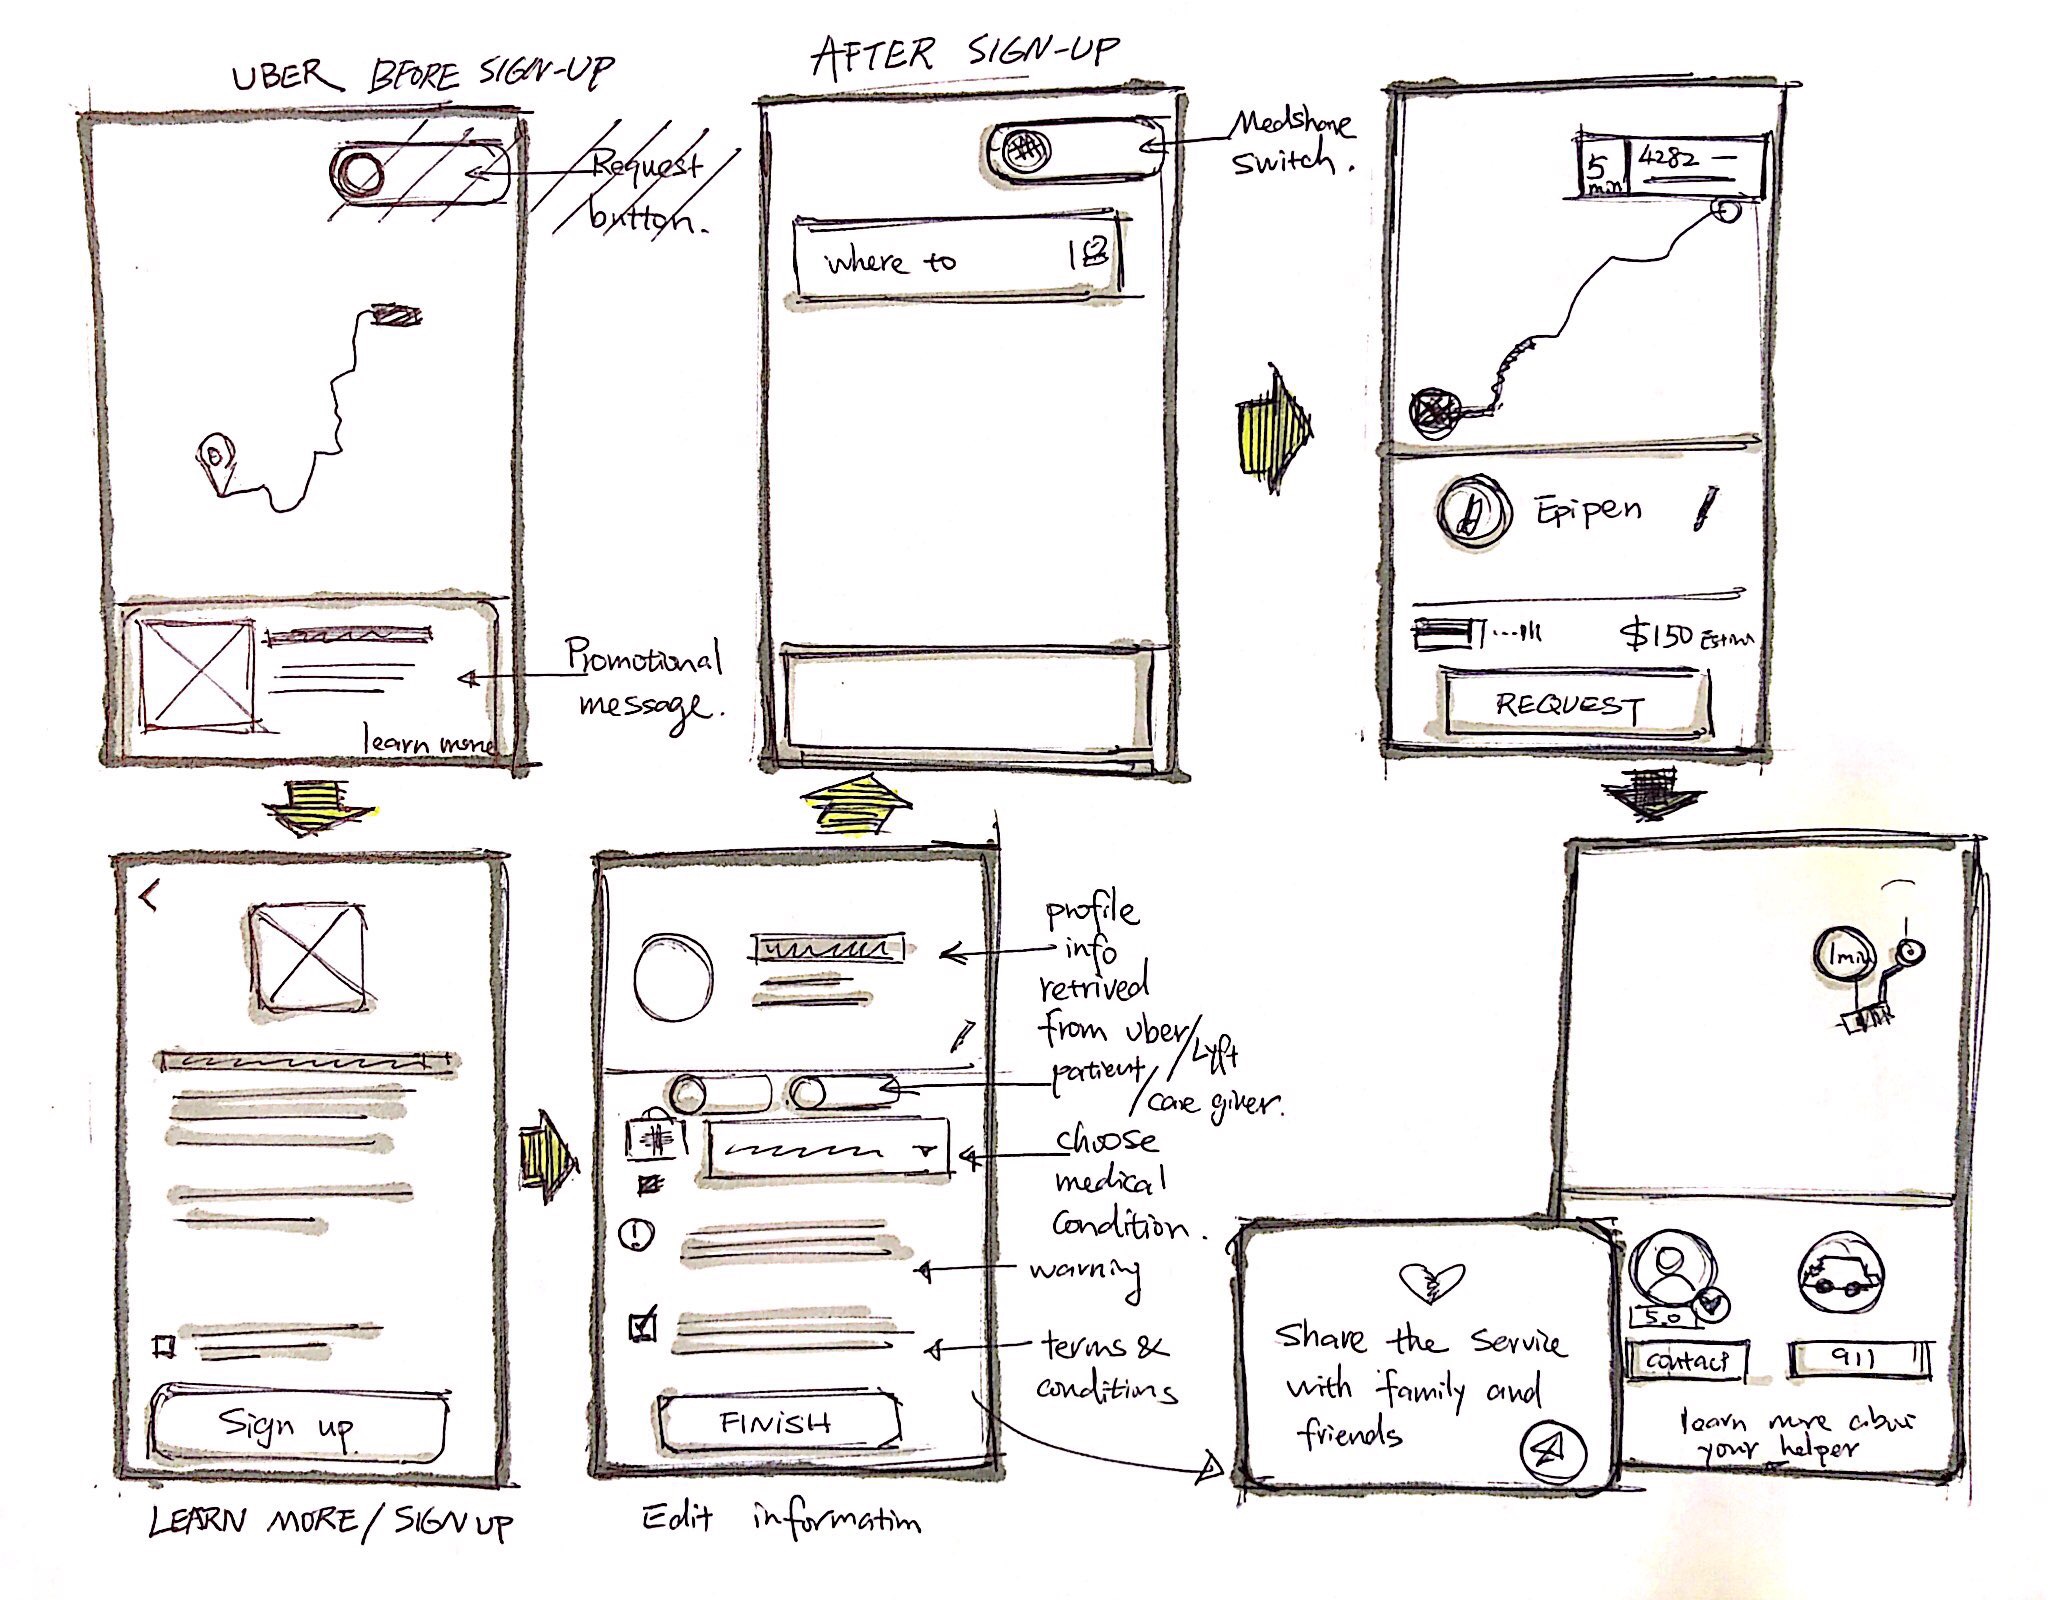 UBER BFORE SIGN-UP
Request
button.
Promotional
message.
learn more
AFTER SIGN-UP
where to
Medshare
switch.
5
min
4282
Epipen
$150
REQUEST
Sign up
LEARN MORE/SIGN UP
profile
info
retrived
from uber/Lyft
patient
/care giver.
choose
medical
condition.
warning
terms &
conditions
FINISH
Edit information
Share the service
with family and
friends
1min
5.0
contact
911
learn more about
your helper